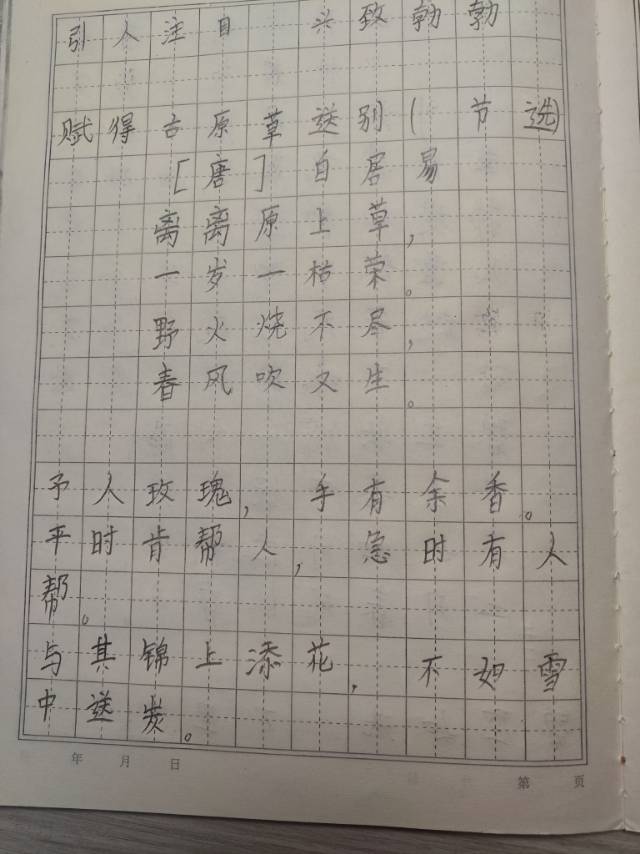 引人注目 兴致勃勃
赋得古原草送别(节选)
[唐]白居易
离离原上草,
一岁一枯荣。
野火烧不尽,
春风吹又生。
予人玫瑰,手有余香。
平时肯帮人,急时有人
帮。
与其锦上添花,不如雪
中送炭。
年 月 日 第 页